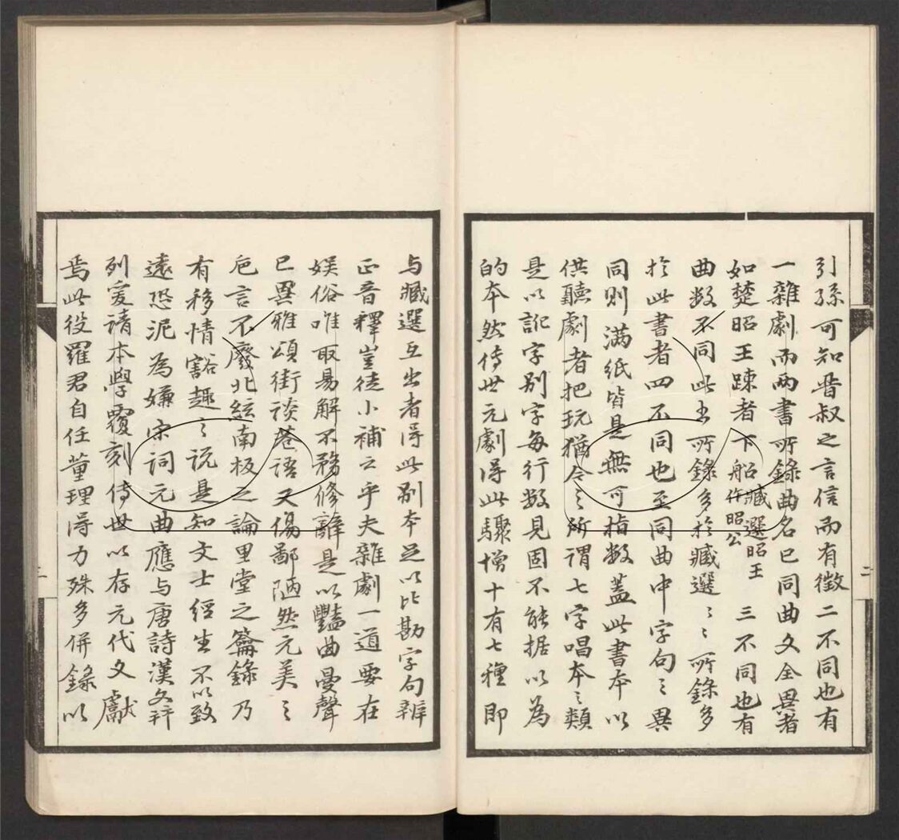 引孫可知晋叔之言信而有徵二不同也有
一雜劇而兩書所錄曲名已同曲文全異者
如楚昭王踈者下船臧選昭王作昭公三不同也有
曲数不同此書所錄多於臧選〻〻所錄多
於此書者四不同也至同曲中字句之異
同則满紙皆是無可指数蓋此書本以
供聽劇者把玩猶今之所謂七字唱本之類
是以訛字别字每行数見固不能据以為
的本然傳世元劇得此驟增十有七種即
与臧選互出者得此别本足以比勘字句辨
正音釋豈徒小補云乎夫雜劇一道要在
娱俗唯取易解不務修辭是以豔曲曼聲
已異雅頌街談巷語又傷鄙陋然元美之
巵言不廢北絃南板之論里堂之籥錄乃
有移情豁趣之説是知文士經生不以致
遠恐泥為嫌宋詞元曲應与唐詩漢文幷
列爰請本學覆刻傳世以存元代文獻
焉此役羅君自任董理得力殊多併錄以
二